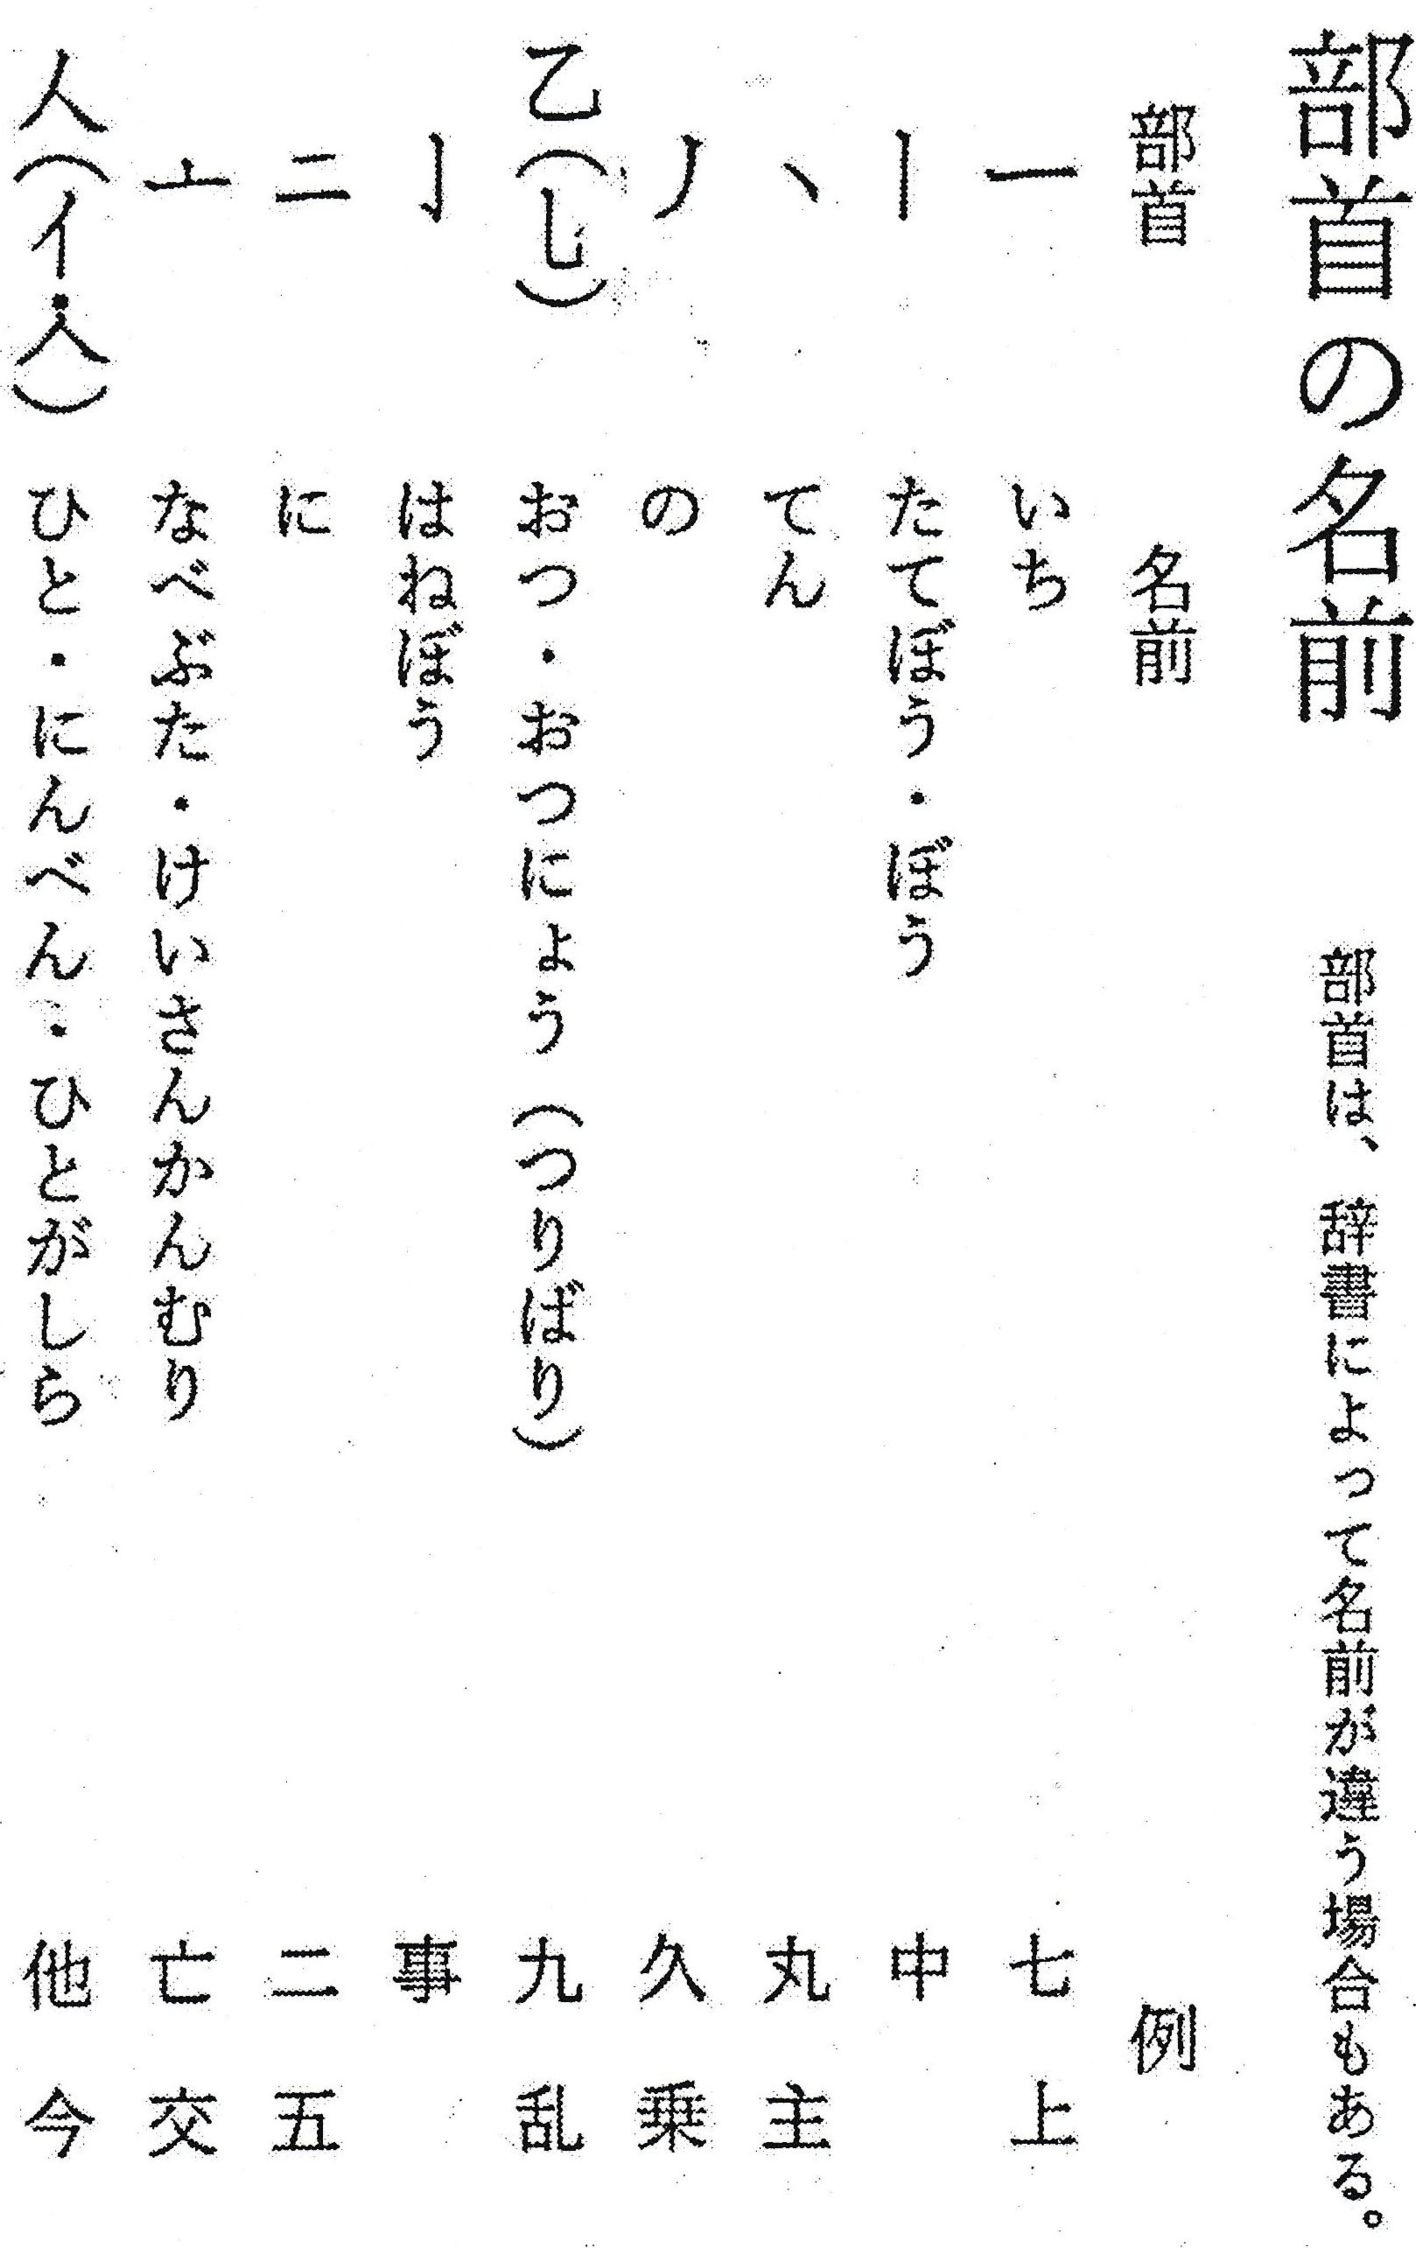 部首の名前　部首は、辞書によって名前が違う場合もある。
部首　名前　例
一　いち　七　上
丨　たてぼう・ぼう　中
丶　てん　丸　主
丿　の　久　乗
乙（乚）　おつ・おつにょう（つりばり）　九　乱
亅　はねぼう　事
二　に　二　五
亠　なべぶた・けいさんかんむり　亡　交
人（亻・𠆢）　ひと・にんべん・ひとがしら　他　今